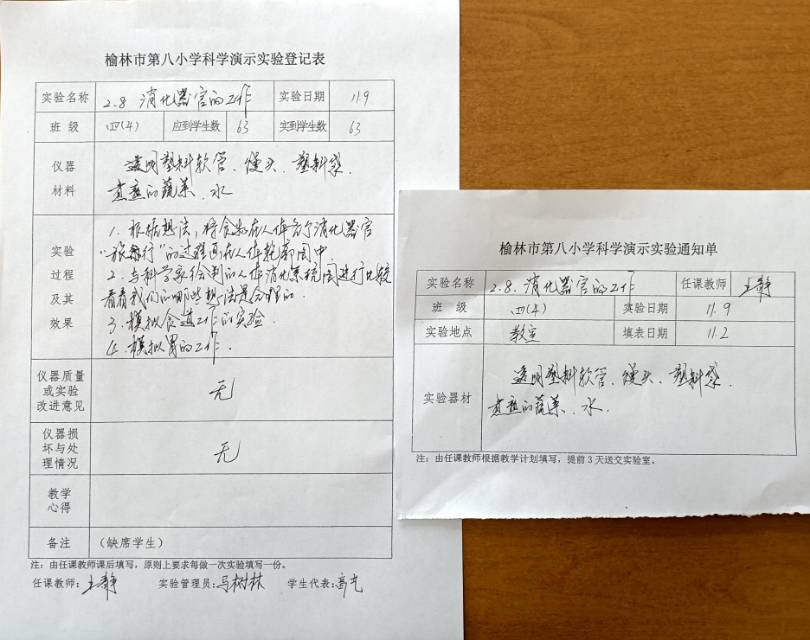 榆林市第八小学科学演示实验登记表
实验名称 2.8 消化器官的工作 实验日期 11.9
班 级 四(4) 应到学生数 63 实到学生数 63
仪器材料 透明塑料软管、馒头、塑料袋、
煮熟的蔬菜、水
实验过程及其效果 1. 根据想法,将食物在人体各个消化器官
"旅行"的过程画在人体轮廓图中
2. 与科学家绘制的人体消化系统图进行比较
看看我们的哪些想法是合理的.
3. 模拟食道工作的实验
4. 模拟胃的工作.
仪器质量或实验改进意见 无
仪器损坏与处理情况 无
教学心得
备注 (缺席学生)
注:由任课教师课后填写,原则上要求每做一次实验填写一份。
任课教师:王静 实验管理员:马树林 学生代表:
榆林市第八小学科学演示实验通知单
实验名称 2.8.消化器官的工作 任课教师 王静
班 级 四(4) 实验日期 11.9
实验地点 教室 填表日期 11.2
实验器材 透明塑料软管、馒头、塑料袋、
煮熟的蔬菜、水.
注:由任课教师根据教学计划填写,提前3天送交实验室。